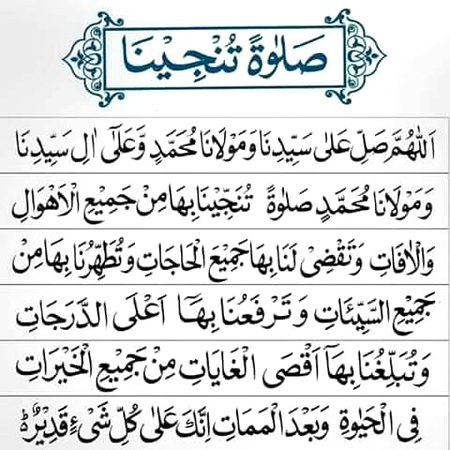 صَلٰوةً تُنْجِيْنَا
اَللّٰهُمَّ صَلِّ عَلٰى سَيِّدِنَا وَمَوْلَانَا مُحَمَّدٍ وَّعَلٰٓى اٰلِ سَيِّدِنَا
وَمَوْلَانَا مُحَمَّدٍ صَلٰوةً تُنَجِّيْنَا بِهَا مِنْ جَمِيْعِ الْاَهْوَالِ
وَالْاٰفَاتِ وَتَقْضِىْ لَنَا بِهَا جَمِيْعَ الْحَاجَاتِ وَتُطَهِّرُنَا بِهَا مِنْ
جَمِيْعِ السَّيِّئَاتِ وَتَرْفَعُنَا بِهَآ اَعْلَى الدَّرَجَاتِ
وَتُبَلِّغُنَا بِهَآ اَقْصَى الْغَايَاتِ مِنْ جَمِيْعِ الْخَيْرَاتِ
فِى الْحَيٰوةِ وَبَعْدَ الْمَمَاتِ اِنَّكَ عَلٰى كُلِّ شَىْءٍ قَدِيْرٌ